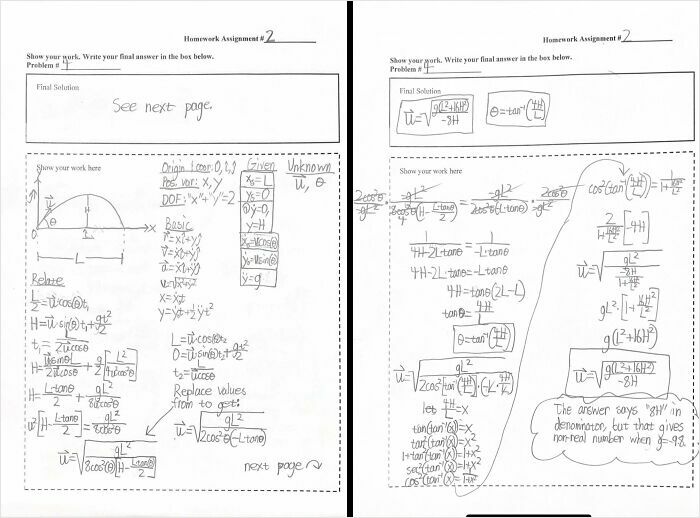 Homework Assignment # 2
Show your work. Write your final answer in the box below.
Problem # 4
Final Solution
See next page.
Show your work here
Origin 1 coor: 0, i, j
Pos. var: x, y
DOF: "x"+"y"=2
Given
x₀=L
y₀=0
@ẏ=0,
y=H
ẋ₀=ucosθ
ẏ₀=usinθ
ÿ=g
Unknown
u⃗, θ
y
u⃗
H
θ
0
L/2
x
L
Basic
r⃗=xi+yj
v⃗=ẋi+ẏj
a⃗=ẍi+ÿj
x=ẋt
y=ẏt+½ÿt²
Relate
L/2=u⃗·cos(θ)t₁
H=u⃗·sin(θ)t₁+gt²/2
t₁=L/2u⃗cosθ
H=u⃗sinθL/2u⃗cosθ+g/2[L²/4u²cos²θ]
H=L·tanθ/2+gL²/8u⃗²cos²θ
u²[H-L·tanθ/2]=gL²/8cos²θ
u⃗=√(gL²/8cos²(θ)[H-L·tan(θ)/2])
L=u⃗·cos(θ)t₂
0=u⃗·sin(θ)t₂+gt²/2
t₂=L/u⃗cosθ
Replace values
from to get:
u⃗=√(gL²/2cos²(θ)(-L·tanθ))
next page
Homework Assignment # 2
Show your work. Write your final answer in the box below.
Problem # 4
Final Solution
u⃗=√(g(L²+16H²)/-8H)
θ=tan⁻¹(4H/L)
Show your work here
2cos²θ/-gL² · -gL²/8cos²θ(H-L·tanθ/2)=-gL²/2cos²θ(L·tanθ) · 2cos²θ/-gL²
1/4H-2L·tanθ=1/-L·tanθ
4H-2L·tanθ=-L·tanθ
4H=tanθ(2L-L)
tanθ=4H/L
θ=tan⁻¹(4H/L)
u⃗=√(gL²/2cos²[tan⁻¹(4H/L)]·(-L·4H/L))
let 4H/L=x
tan(tan⁻¹(x))=x
tan²(tan⁻¹(x))=x²
1+tan²(tan⁻¹(x))=1+x²
sec²(tan⁻¹(x))=1+x²
cos²(tan⁻¹(x))=1/1+x²
cos²(tan⁻¹(4H/L))=1/1+16H²/L²
2/1+16H²/L²[-4H]
u⃗=√(gL²/-8H/1+16H²/L²)
gL²·[1+16H²/L²]
g(L²+16H²)
u⃗=√(g(L²+16H²)/-8H)
The answer says "8H" in
denominator, but that gives
non-real number when g=-9.8.